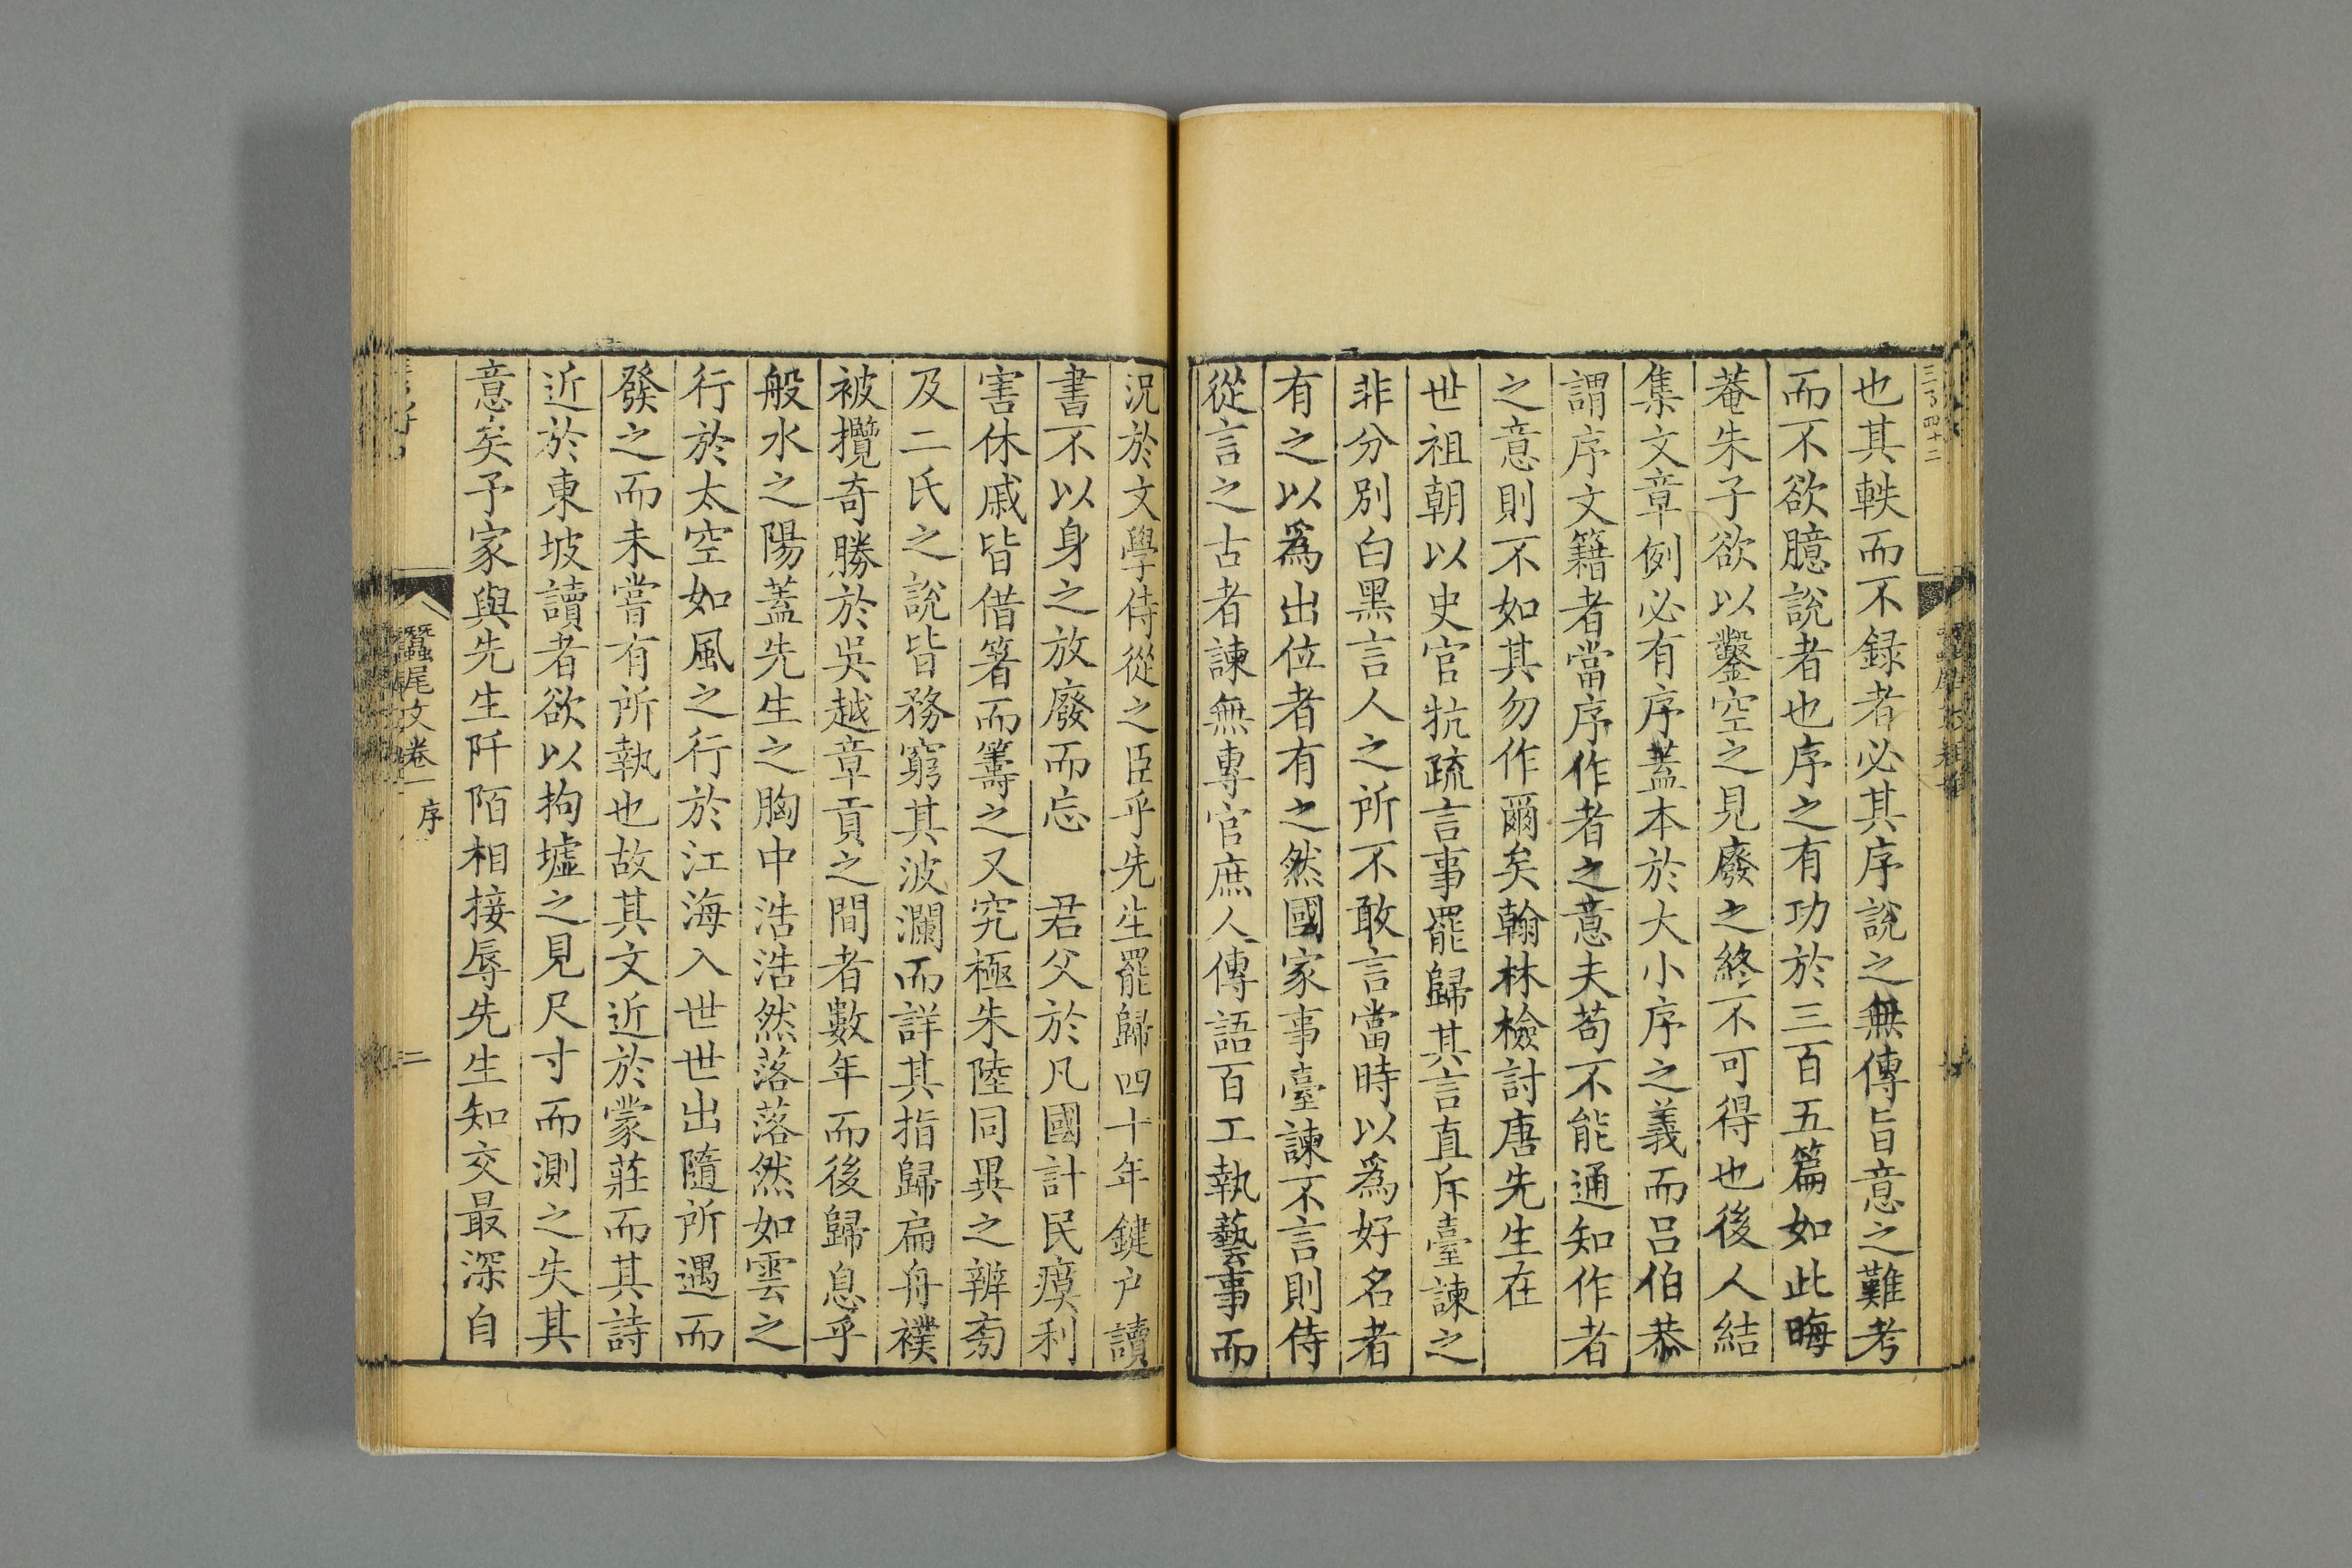 也其軼而不録者必其序說之無傳旨意之難考
而不欲臆說者也序之有功於三百五篇如此晦
菴朱子欲以鑿空之見廢之終不可得也後人結
集文章例必有序蓋本於大小序之義而吕伯恭
謂序文籍者當序作者之意夫苟不能通知作者
之意則不如其勿作爾矣翰林檢討唐先生在
世祖朝以史官抗疏言事罷歸其言直斥臺諫之
非分別白黑言人之所不敢言當時以爲好名者
有之以爲出位者有之然國家事臺諫不言則侍
從言之古者諫無專官庶人傳語百工執藝事而
況於文學侍從之臣乎先生罷歸四十年鍵户讀
書不以身之放廢而忘　君父於凡國計民瘼利
害休戚皆借箸而籌之又究極朱陸同異之辨旁
及二氏之說皆務窮其波瀾而詳其指歸扁舟襆
被攬奇勝於吳越章貢之間者數年而後歸息乎
般水之陽蓋先生之胸中浩浩然落落然如雲之
行於太空如風之行於江海入世世出隨所遇而
發之而未嘗有所執也故其文近於蒙莊而其詩
近於東坡讀者欲以拘墟之見尺寸而測之失其
意矣予家與先生阡陌相接辱先生知交最深自
蠶尾文卷一 序
二